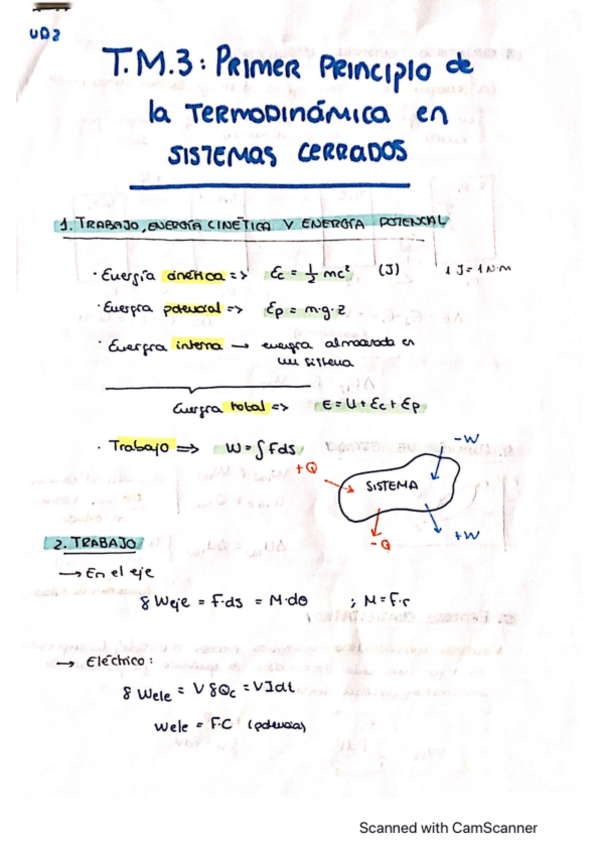 UD2
T.M.3: PRIMER PRINCIPIO de
la TERMODINÁMICA en
SISTEMAS CERRADOS
1. TRABAJO, ENERGÍA CINÉTICA Y ENERGÍA POTENCIAL
· Energía cinética => Ec = 1/2 mc² (J) 1 J = 1 N·m
· Energía potencial => Ep = m·g·z
· Energía interna → energía almacenada en
un sistema
Energía total => E = U + Ec + Ep
· Trabajo => W = ∫Fds
-W
+Q
SISTEMA
+W
-Q
2. TRABAJO
→ En el eje
δWeje = F·ds = M·dθ ; M = F·r
→ Eléctrico:
δWele = VδQc = VIdt
Wele = F·C (potencia)
Scanned with CamScanner